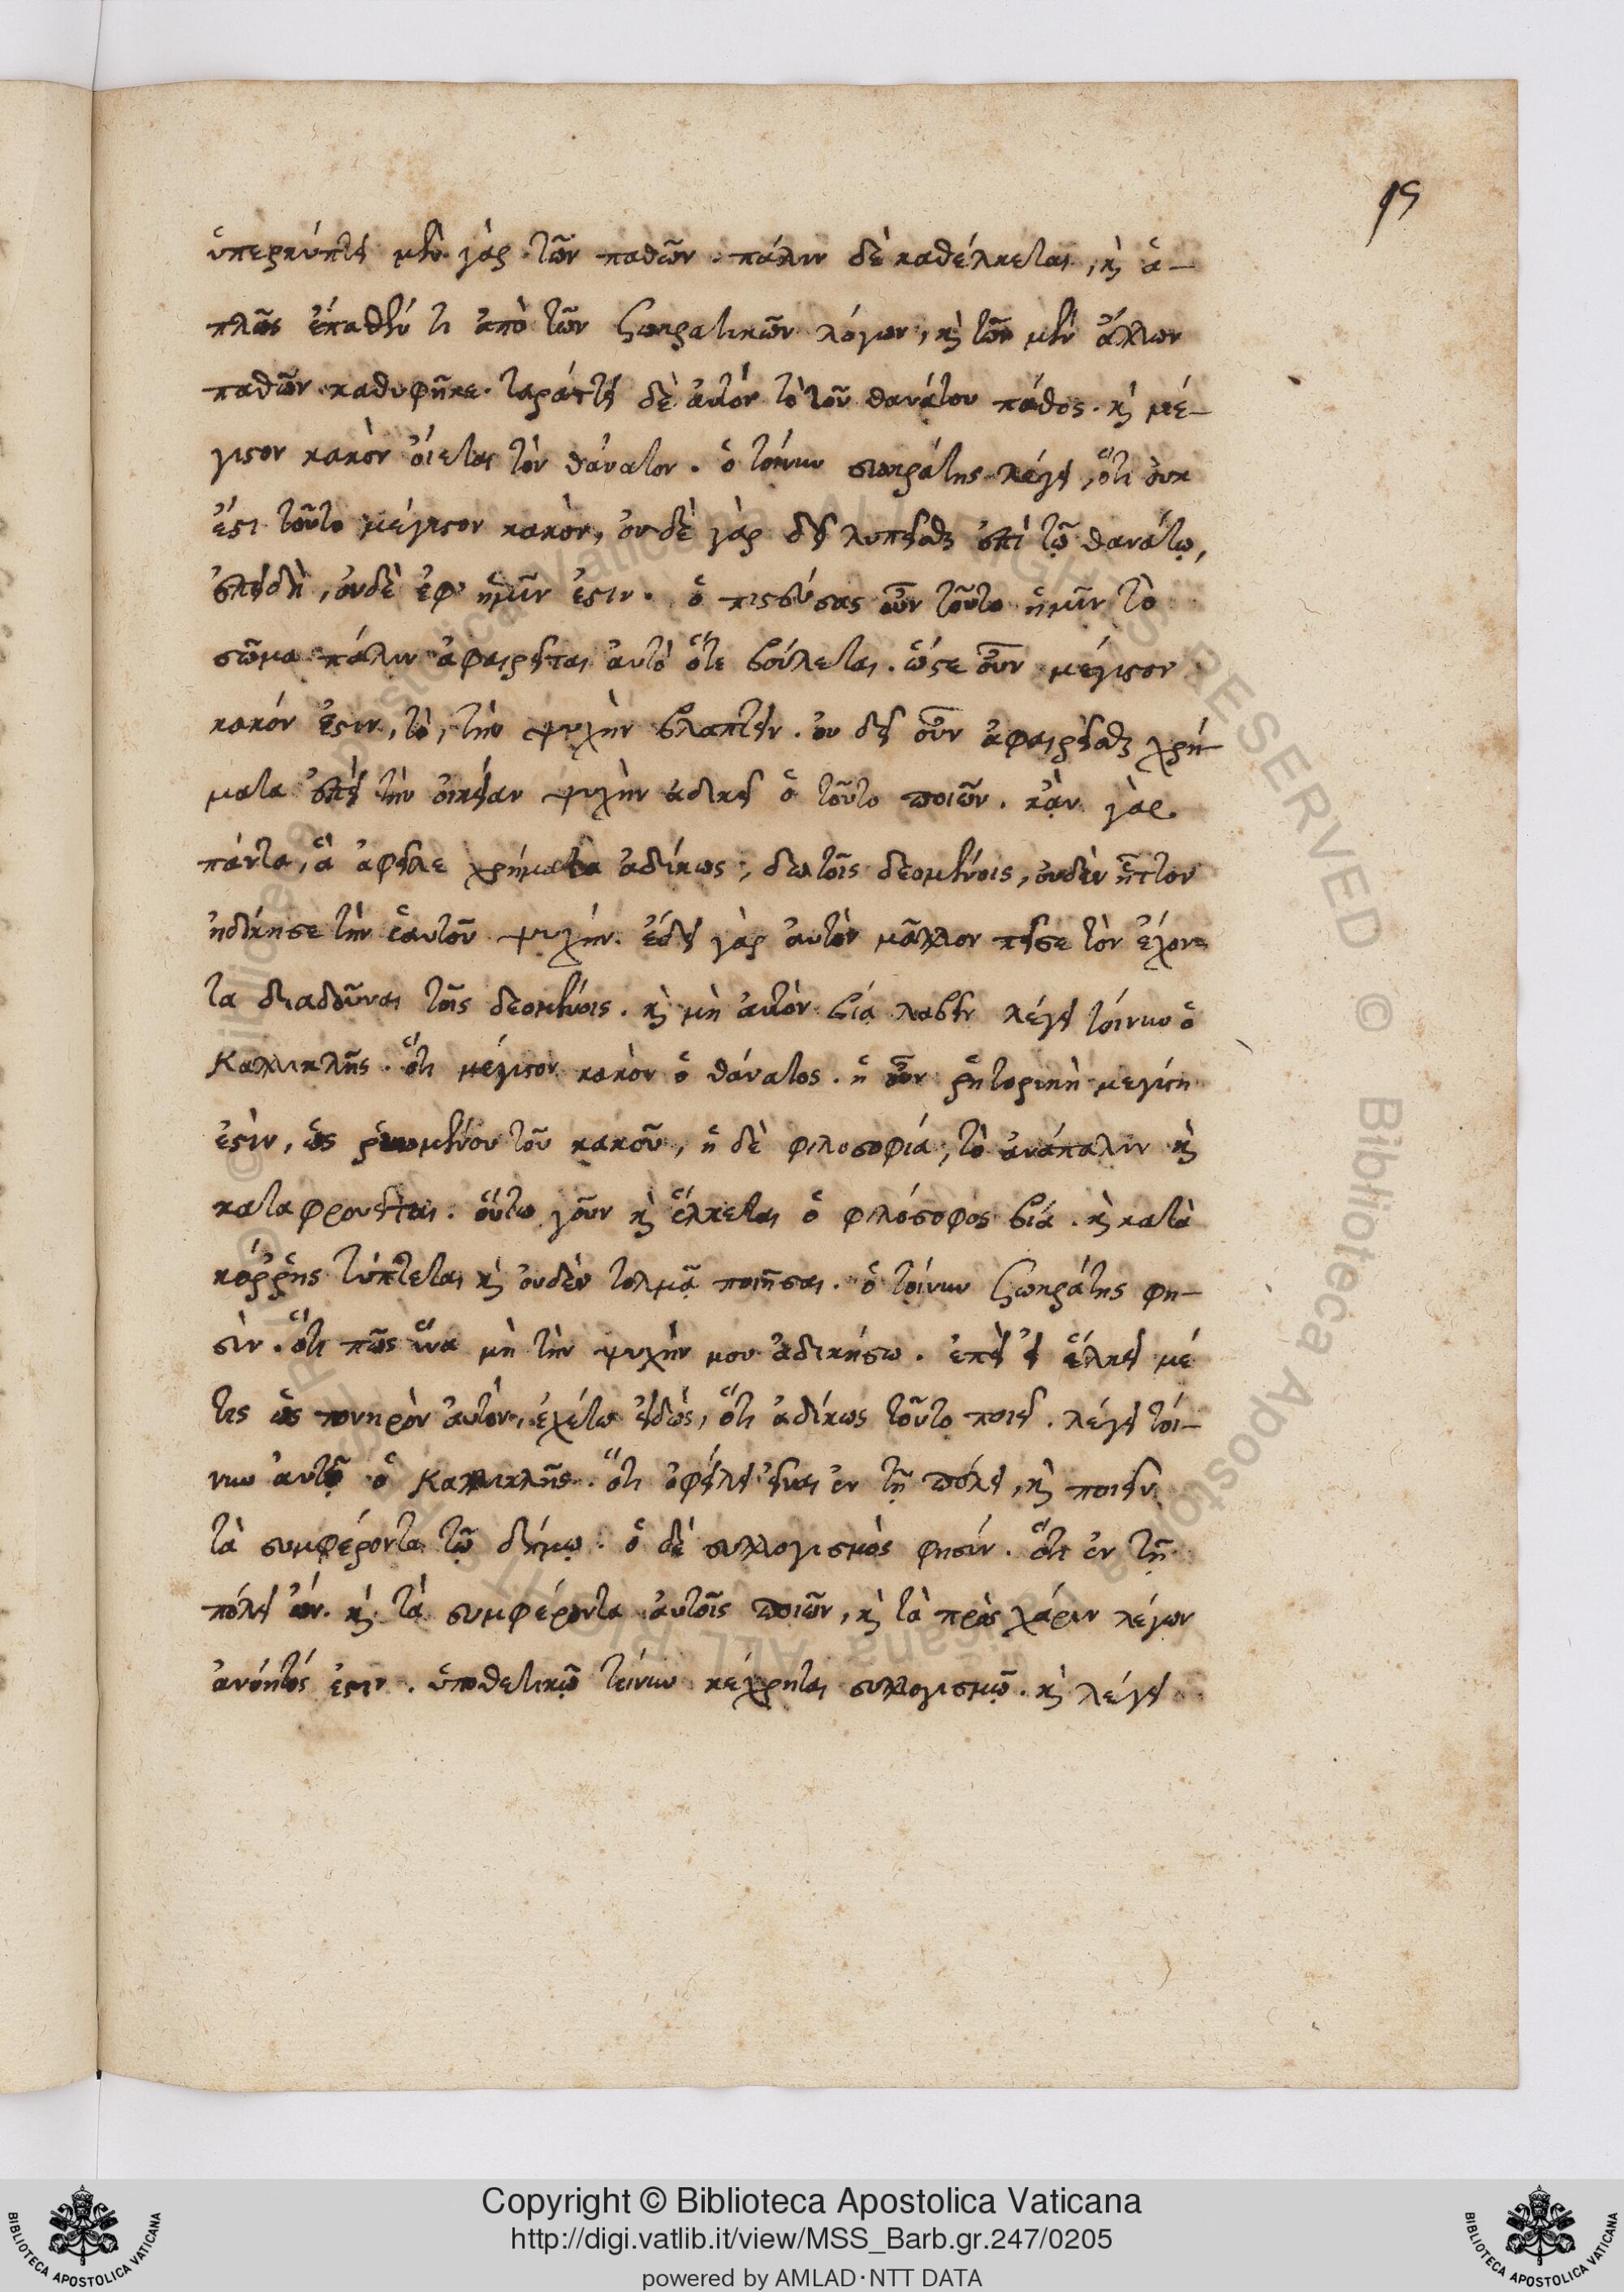 19
ὑπερκύπτει μὲν γὰρ τῶν παθῶν. πάλιν δὲ καθέλκεται, καὶ ἁ-
πλῶς ἔπαθέν τι ἀπὸ τῶν Σωκρατικῶν λόγων, καὶ τῶν μὲν ἄλλων
παθῶν καθυφῆκε. ταράττει δὲ αὐτόν τὸ τοῦ θανάτου πάθος. καὶ μέ-
γιστον κακὸν οἴεται τὸν θάνατον. ὁ τοίνυν σωκράτης λέγει, ὅτι οὐκ
ἔστι τοῦτο μέγιστον κακὸν, οὐδὲ γὰρ δεῖ λυπεῖσθαι ἐπὶ τῷ θανάτῳ,
ἐπειδὴ, οὐδὲ ἐφ' ἡμῖν ἐστιν. ὁ πιστεύσας οὖν τοῦτο ἡμῖν τὸ
σῶμα πάλιν ἀφαιρεῖται αὐτὸ ὅτε βούλεται. ὥστε οὖν μέγιστον
κακόν ἐστιν, τὸ, τὴν ψυχὴν βλαπτειν. οὐ δεῖ οὖν ἀφαιρεῖσθαι χρή-
ματα ἐπεὶ τὴν οἰκείαν ψυχὴν ἀδικεῖ ὁ τοῦτο ποιῶν. κἂν γὰρ
πάντα, ἃ ἀφεῖλε χρήματα ἀδίκως, δῶ τοῖς δεομένοις, οὐδὲν ἧττον
ἠδίκησε τὴν ἑαυτοῦ ψυχήν. ἔδει γὰρ αὐτὸν μᾶλλον πεῖσαι τὸν ἔχον
τα διαδοῦναι τοῖς δεομένοις. καὶ μὴ αὐτὸν βίᾳ λαβεῖν λέγει τοίνυν ὁ
Καλλικλῆς. ὅτι μέγιστον κακὸν ὁ θάνατος. ἡ οὖν ῥητορικὴ μεγίστη
ἐστὶν, ὡς ῥυομένου τοῦ κακοῦ, ἡ δὲ φιλοσοφία, τὸ ἀνάπαλιν καὶ
καταφρονεῖται. οὕτω γοῦν καὶ ἕλκεται ὁ φιλόσοφος βίᾳ. καὶ κατὰ
κόῤῥης τύπτεται καὶ οὐδὲν τολμᾷ ποιῆσαι. ὁ τοίνυν Σωκράτης φη-
σὶν. ὅτι πῶς ἵνα μὴ τὴν ψυχήν μου ἀδικήσω. ἐπεὶ εἰ ἕλκει μέ
τις ὡς πονηρὸν αὐτὸν, ἐχέτω εἰδώς, ὅτι ἀδίκως τοῦτο ποιεῖ. λέγει τοί-
νυν αὐτῷ ὁ Καλλικλῆς. ὅτι ὀφείλει εἶναι ἐν τῇ πόλει, καὶ ποιεῖν
τὰ συμφέροντα τῷ δήμῳ. ὁ δὲ συλλογισμὸς φησίν. ὅτι ἐν τῇ
πόλει ὤν. καὶ τὰ συμφέροντα αὐτοῖς ποιῶν, καὶ τὰ πρὸς χάριν λέγων
ἀνόητός ἐστιν. ὑποθετικῷ τοίνυν κέχρηται συλλογισμῷ. καὶ λέγει
Copyright © Biblioteca Apostolica Vaticana
http://digi.vatlib.it/view/MSS_Barb.gr.247/0205
powered by AMLAD·NTT DATA